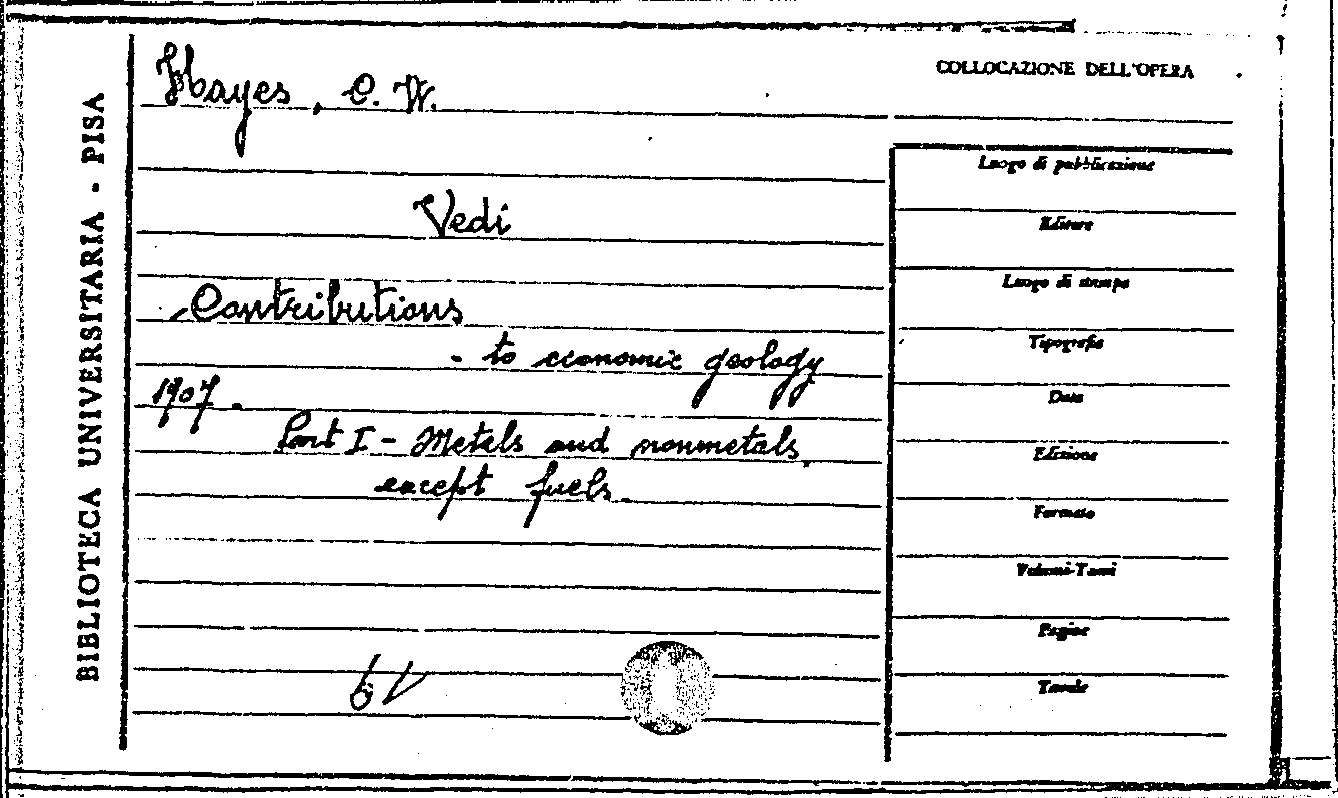 BIBLIOTECA UNIVERSITARIA - PISA
Hayes, C. W.
Vedi
Contributions
- to economic geology
1907.
Part I - Metals and nonmetals,
except fuels.
COLLOCAZIONE DELL'OPERA
Luogo di pubblicazione
Editore
Luogo di stampa
Tipografia
Data
Edizione
Formato
Volumi-Tomi
Pagine
Tavole